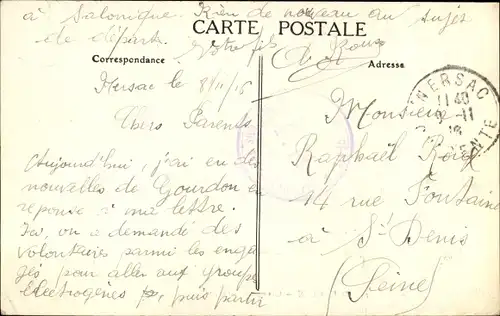 à Salonique. Rien de nouveau au sujet
de départ. Votre fils
CARTE POSTALE
Correspondance
Adresse
Nersac le 8/11/16
Chers Parents
Aujourd'hui, j'ai eu des
nouvelles de Gourdon en
réponse à ma lettre.
Ici, on a demandé des
volontaires parmi les enga-
gés pour aller aux groupes
électrogènes, puis partir
Monsieur
Raphaël
14 rue Fontaine
à St Denis
(Seine)
NERSAC